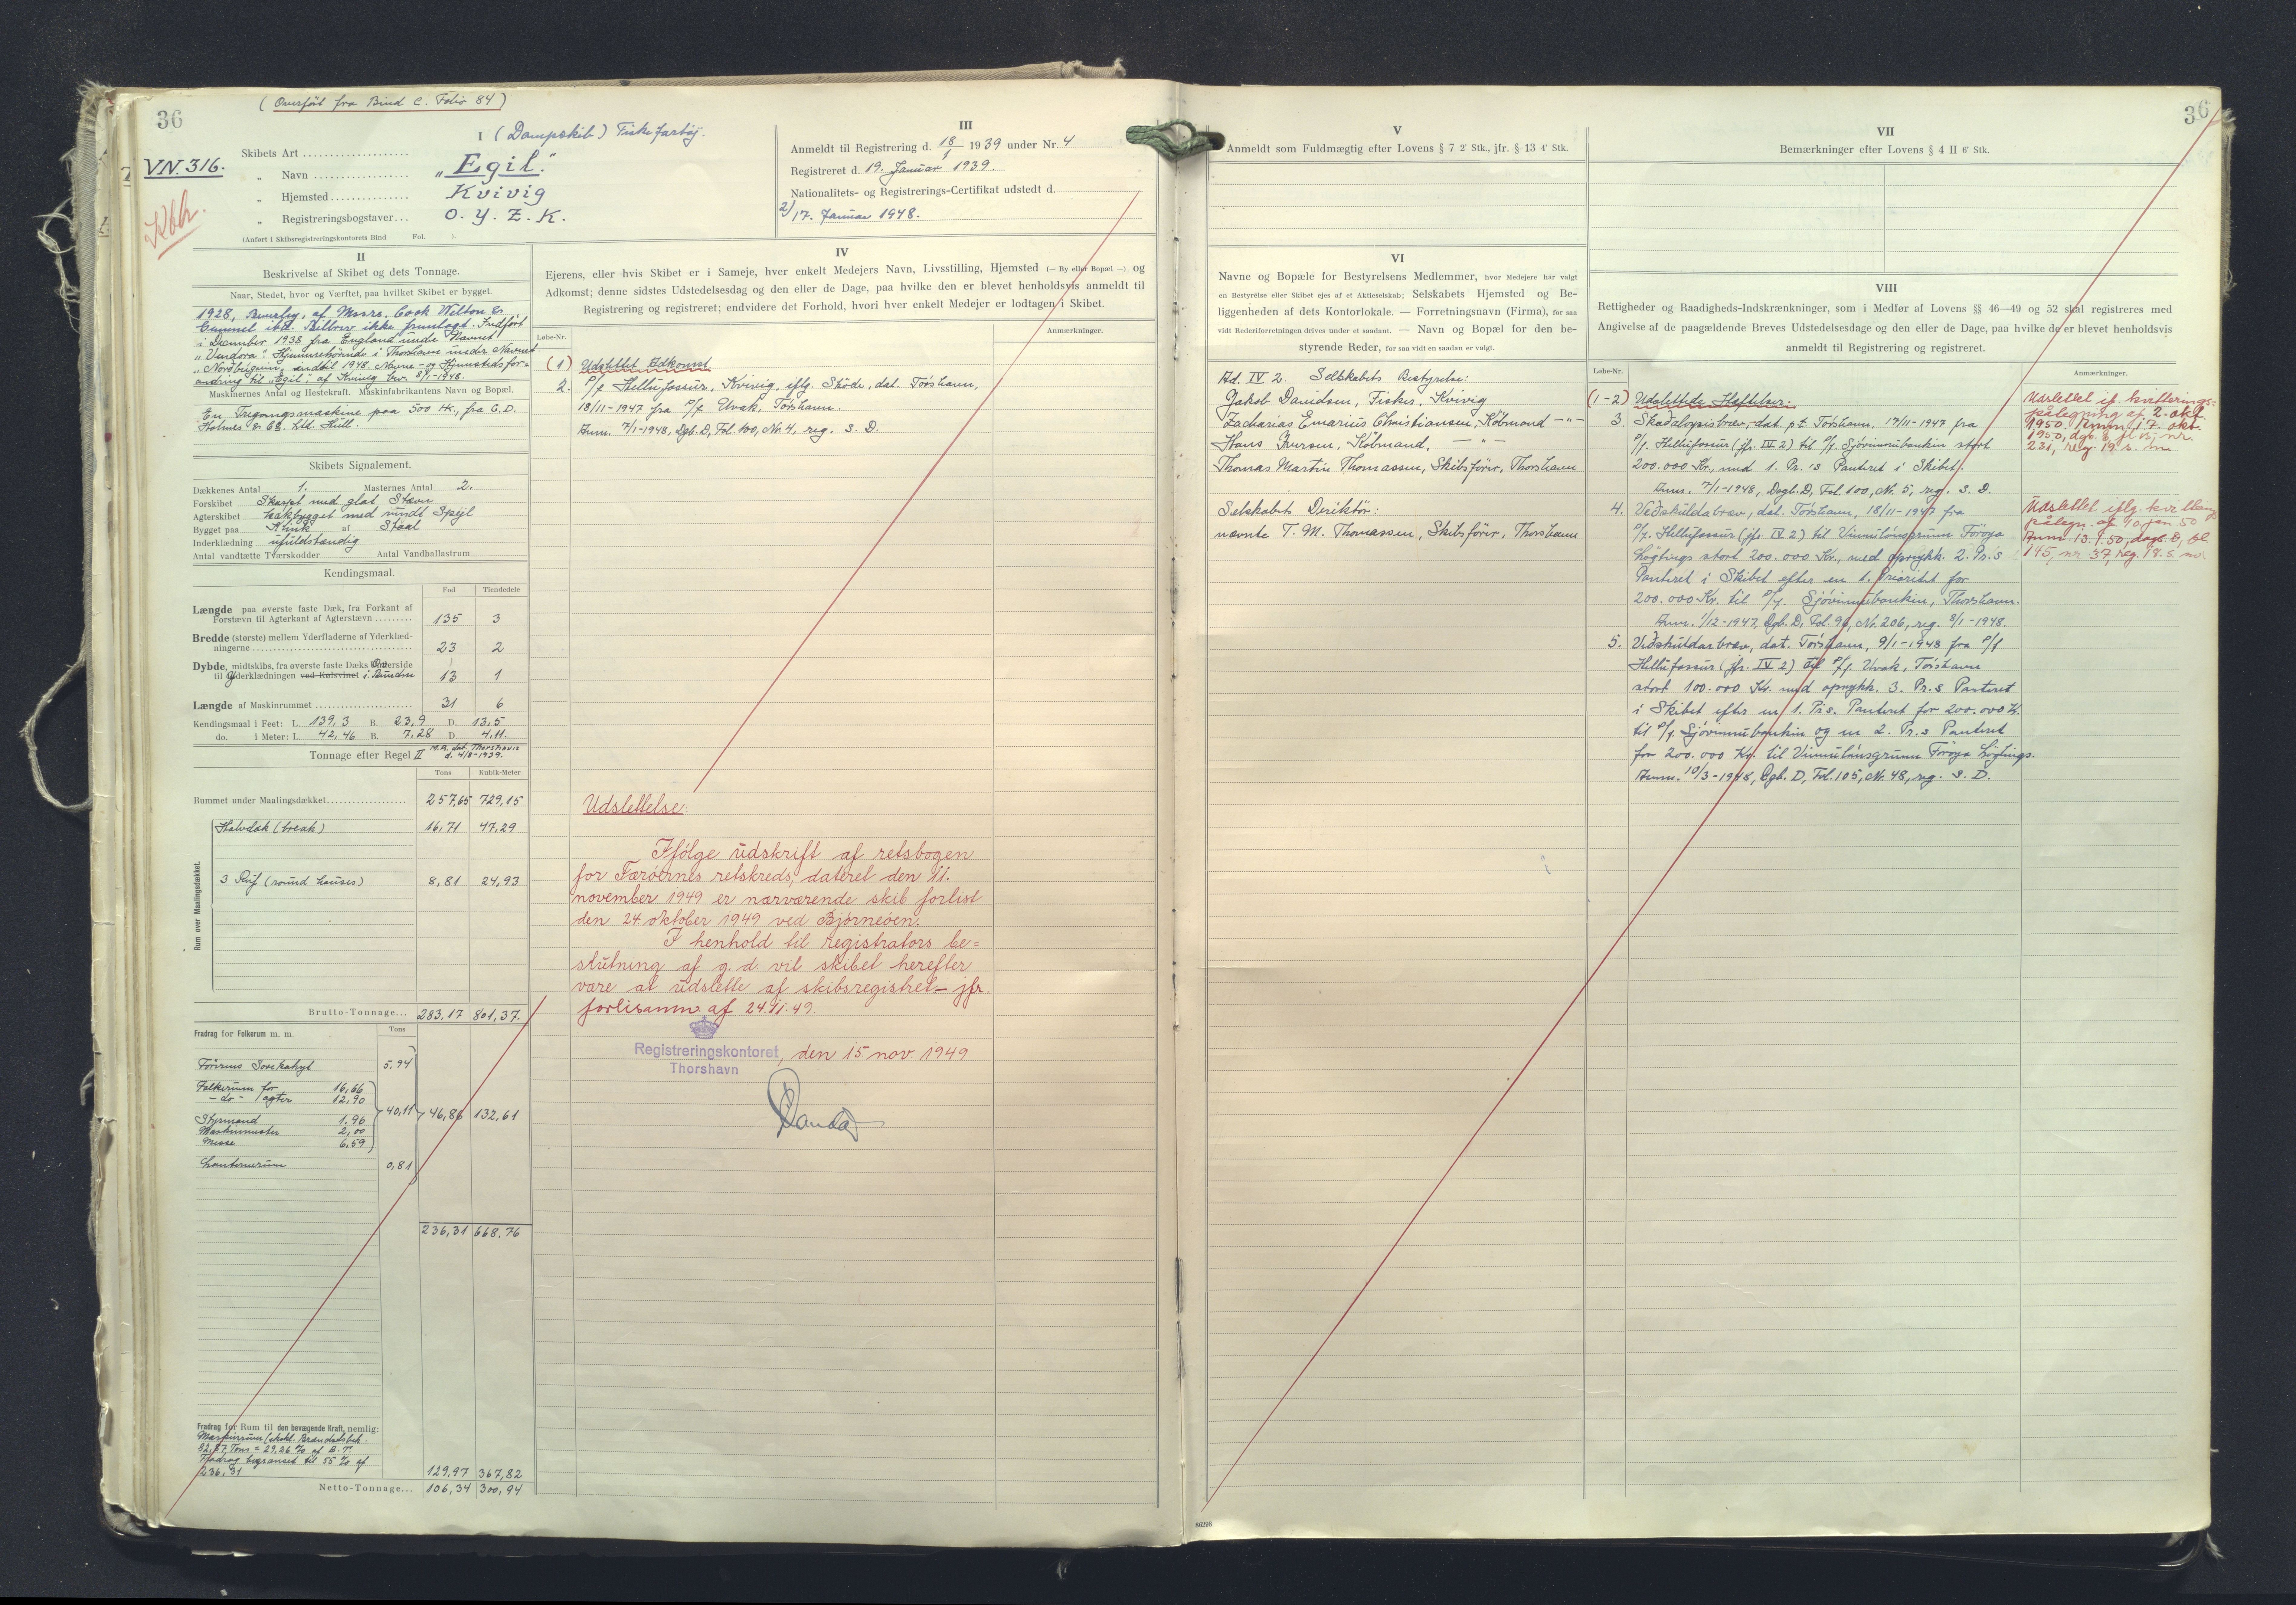 36
( Overført fra Bind C. Folio 84 )
VN. 316.
Kbh.
I (Dampskib) Fiskefartøj.
Skibets Art
„ Navn „Egil“.
„ Hjemsted Kvivig
„ Registreringsbogstaver O. Y. Z. K.
(Anført i Skibsregistreringskontorets Bind Fol. ).
III
Anmeldt til Registrering d. 18/1 1939 under Nr. 4
Registreret d. 19. Januar 1939.
Nationalitets- og Registrerings-Certifikat udstedt d.
2/ 17. Januar 1948.
II
Beskrivelse af Skibet og dets Tonnage.
Naar, Stedet, hvor og Værftet, paa hvilket Skibet er bygget.
1928, Beverley, af Messrs. Cook Welton &
Gemmel ibd. Bilbrev ikke fremlagt. Indført
i December 1938 fra England under Navnet
„Vendora“. Hjemmehørende i Thorshavn under Navnet
„Nordbugvin“, indtil 1948. Navne- og Hjemstedsfor=
andring til „Egil“, af Kvivig bev. 8/1-1948.
Maskinernes Antal og Hestekraft. Maskinfabrikantens Navn og Bopæl.
En Tregangsmaskine paa 500 HK., fra C. D.
Holmes & Co. Ltd. Hull.
Skibets Signalement.
Dækkenes Antal 1. Masternes Antal 2.
Forskibet Skarpt med glat Stævn
Agterskibet hækbygget med rundt Spejl
Bygget paa Klink af Staal
Inderklædning ufuldstændig
Antal vandtætte Tværskodder Antal Vandballastrum
Kendingsmaal.
Fod Tiendedele
Længde paa øverste faste Dæk, fra Forkant af
Forstævn til Agterkant af Agterstævn 135 3
Bredde (største) mellem Yderfladerne af Yderklæd-
ningerne 23 2
Dybde, midtskibs, fra øverste faste Dæks Overside
til Yderklædningen ved Kølsvinet i Bunden 13 1
Længde af Maskinrummet 31 6
Kendingsmaal i Feet: L. 139,3 B. 23,9 D. 13,5
do. i Meter: L. 42,46 B. 7,28 D. 4,11.
Tonnage efter Regel II M.B. dat. Thorshavn
d. 4/8-1939.
Tons Kubik-Meter
Rummet under Maalingsdækket 257,65 729,15
Rum over Maalingsdækket.
Halvdæk (break) 16,71 47,29
3 Ruf (round houses) 8,81 24,93
Brutto-Tonnage 283,17 801,37.
Fradrag for Folkerum m. m.
Tons
Førerens Sovekahyt 5,94
Folkerum for 16,66
- do - agter 12,90
40,11 46,86 132,61
Styrmand 1,96
Maskinmester 2,00
Messe 6,59
Lanternerum 0,81
236,31 668,76
Fradrag for Rum til den bevægende Kraft, nemlig:
Maskinrum (ekskl. Brændselsbeh.
82,87 Tons = 29,26 % af B. T.
Fradrag begrænset til 55 % af
236,31 129,97 367,82
Netto-Tonnage 106,34 300,94
IV
Ejerens, eller hvis Skibet er i Sameje, hver enkelt Medejers Navn, Livsstilling, Hjemsted (— By eller Bopæl —) og
Adkomst; denne sidstes Udstedelsesdag og den eller de Dage, paa hvilke den er blevet henholdsvis anmeldt til
Registrering og registreret; endvidere det Forhold, hvori hver enkelt Medejer er lodtagen i Skibet.
Løbe-Nr. Anmærkninger.
(1) Udslettet Adkomst
2. P/f Hellufossur, Kvivig, iflg. Skøde, dat. Tórshavn,
18/11-1947 fra P/f Uvak, Tórshavn.
Anm. 7/1-1948, Dgb. D, Fol. 100, Nr. 4, reg. s. D.
Udslettelse:
Ifølge udskrift af retsbogen
for Færøernes retskreds, dateret den 11.
november 1949 er nærværende skib forlist
den 24 oktober 1949 ved Bjørneøen.
I henhold til registrators be=
slutning af g. d. vil skibet herefter
være at udslette af skibsregistret - jfr.
forlisanm. af 24.11.49.
Registreringskontoret, den 15 nov. 1949
Thorshavn
36
V
Anmeldt som Fuldmægtig efter Lovens § 7 2' Stk., jfr. § 13 4' Stk.
VI
Navne og Bopæle for Bestyrelsens Medlemmer, hvor Medejere har valgt
en Bestyrelse eller Skibet ejes af et Aktieselskab; Selskabets Hjemsted og Be-
liggenheden af dets Kontorlokale. — Forretningsnavn (Firma), for saa
vidt Rederiforretningen drives under et saadant. — Navn og Bopæl for den be-
styrende Reder, for saa vidt en saadan er valgt.
Ad. IV 2. Selskabets Bestyrelse:
Jakob Davidsen, Fisker, Kvivig
Zacharias Emarius Christiansen, Købmand — " —
Hans Iversen, Købmand, — " —
Thomas Martin Thomassen, Skibsfører, Thorshavn
Selskabets Direktør:
nævnte T. M. Thomassen, Skibsfører, Thorshavn
VII
Bemærkninger efter Lovens § 4 II 6' Stk.
VIII
Rettigheder og Raadigheds-Indskrænkninger, som i Medfør af Lovens §§ 46—49 og 52 skal registreres med
Angivelse af de paagældende Breves Udstedelsesdag og den eller de Dage, paa hvilke de er blevet henholdsvis
anmeldt til Registrering og registreret.
Løbe-Nr. Anmærkninger.
(1-2) Udslettede Hæftelser:
3. Skadaloysisbræv, dat. p.t. Tórshavn, 17/11-1947 fra
P/f. Hellufossur (jfr. IV 2) til P/f. Sjóvinnubankin stort
200.000 Kr., med 1. Pr.'s Panteret i Skibet.
Anm. 7/1-1948, Dagb. D, Fol. 100, Nr. 5, reg. s. D.
Udslettet if. kvitterings=
påtegning af 2. okt.
1950. Anm. 17. okt.
231, reg. 19. s. m.
4. Veðskuldabræv, dat. Tórshavn, 18/11-1947 fra
P/f. Hellufossur (jfr. IV 2) til Vinnulánsgrunn Føroya
Løgtings stort 200.000 Kr., med oprykk. 2. Pr.s
Panteret i Skibet efter en 1. Prioritet for
200.000 Kr. til P/f. Sjóvinnubankin, Thorshavn.
Anm. 1/12-1947, Dgb. D, Fol. 96, Nr. 206, reg. 8/1-1948.
Udslettet iflg. kvitterings
påtegn. af 10 jan. 50
Anm. 13.1.50, dagb. D, fol.
145, nr. 37, reg. 18. s. m.
5. Veðskuldarbræv, dat. Tórshavn, 9/1-1948 fra P/f
Hellufossur (jfr. IV 2) til P/f. Uvak, Tórshavn
stort 100.000 Kr. med oprykk. 3. Pr.s Panteret
i Skibet efter en 1. Pr.s. Panteret for 200.000 Kr.
til P/f. Sjóvinnubankin og en 2. Pr.s Panteret
for 200.000 Kr. til Vinnulánsgrunn Føroya Løgtings.
Anm. 10/3-1948, Dgb. D, Fol. 105, Nr. 48, reg. s. D.
86298